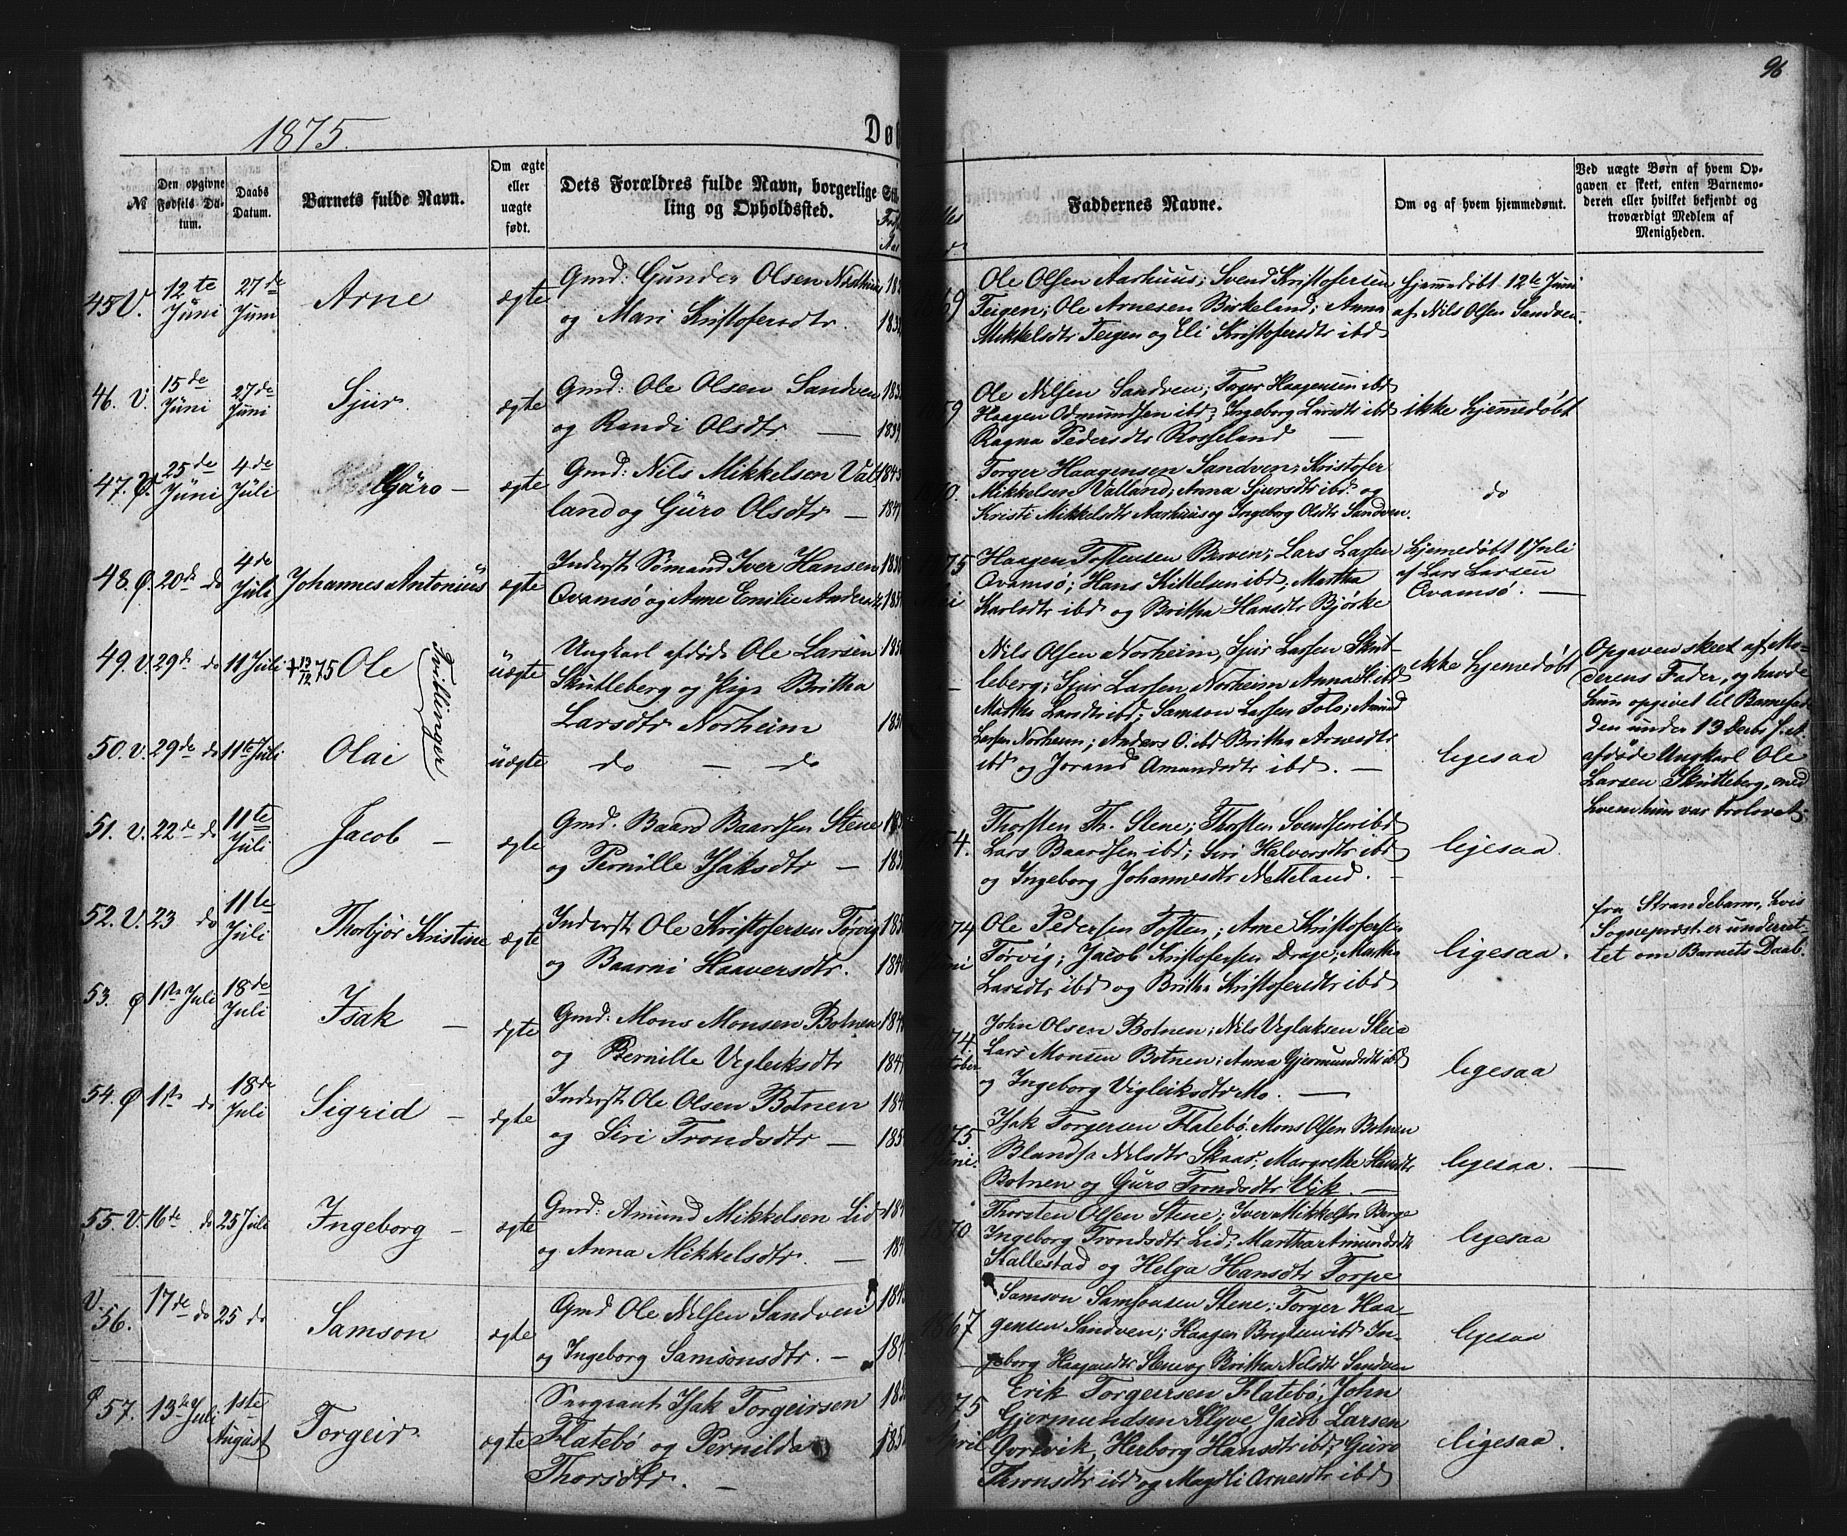 1875.
Døb
96
№
Den opgivne Fødsels Datum.
Daabs Datum.
Barnets fulde Navn.
Om ægte eller uægte født.
Dets Forældres fulde Navn, borgerlige Stilling og Opholdssted.
Faddernes Navne.
Om og af hvem hjemmedøbt.
Ved uægte Børn af hvem Opgaven er skeet, enten Barnemoderen eller hvilket bekjendt og troværdigt Medlem af Menigheden.
45 V. 12te Juni 27de Juni Arne ægte
Gmd: Gunder Olsen
og Mari Kristofersdtr.
Ole Olsen Aarhuus; Svend Kristofersen
Teigen; Ole Arnesen Birkeland; Anna
Mikkelsdtr Teigen og Eli Kristofersdtr ibd
Hjemmedøbt 12te Juni
af Nils Olsen Sandven.
46. V. 15de Juni 27de Juni Sjur ægte
Gmd: Ole Olsen Sandven
og Randi Olsdtr —
Ole Nilsen Sandven; Torger Haagensen ibd
Haagen Odmundsen ibd; Ingeborg Larsdtr ibd
Ragna Pedersdtr Rosseland —
ikke hjemmedøbt
47. Ø. 25de Juni 4de Juli Guro — ægte
Gmd: Nils Mikkelsen Val-
land og Guro Olsdtr —
Torger Haagensen Sandven; Kristofer
Mikkelsen Valland; Anna Sjursdtr ibd og
Kristi Mikkelsdtr Aarhuus og Ingeborg Olsdtr Sandven.
do
48. Ø. 20de do 4de Juli Johannes Antonius ægte
Inderst Sømand Iver Hansen
Qvamsø og Anne Emilie
Haagen Toftensen Berven; Lars Larsen
Qvamsø; Hans Kittelsen ibd; Martha
Karlsdtr ibd og Britha Hansdtr Bjørke
1875
Hjemmedøbt 1 Juli
af Lars Larsen
Qvamsø. —
49. V. 29de do 11 Juli + 12/12 75 Ole uægte
Tvillinger
Ungkarl afdøde Ole Larsen
Skutleberg og Pige Britha
Larsdtr Norheim
Nils Olsen Norheim, Sjur Larsen Skut-
leberg; Sjur Larsen Norheim Anna ibd
Martha Larsdtr ibd; Samson Larsen Tolo; Amund
Larsen Norheim; Anders O. ibd Britha Arnesdtr
ibd og Jorand Amundsdtr ibd. —
ikke hjemmedøbt
Opgaven skeet af Mo-
derens Fader, og havde
hun opgivet til Barnefa-
den under 13 Decbr f. A.
afdøde Ungkarl Ole
Larsen Skutleberg, med
hvem hun var trolovet;
50. V. 29de do 11te Juli Olai uægte do — do
ligesaa
51. V. 22de do 11te Juli Jacob — ægte
Gmd. Baard Baardsen Stene
og Pernille Isaksdtr —
Thorsten Th. Stene; Thorsten Svendsen ibd
Lars Baardsen ibd; Siri Halversdtr ibd
og Ingeborg Johannesdtr Netteland. —
ligesaa.
52. V. 23 do 11te Juli Thorbjør Kristine ægte
Inderst Ole Kristofersen Tørvig
og Baarni Haaversdtr.
1874
Juni
Ole Pedersen Toften; Arne Kristofersen
Torvig; Jacob Kristofersen Drage; Martha
Larsdtr ibd og Britha Kristofersdtr ibd
ligesaa.
fra Strandebarm, hvis
Sognepræst er underret-
tet om Barnets Daab.
53. Ø 1ste Juli 18de Juli Isak — ægte
Gmd: Mons Monsen Botnen
og Pernille Vigleiksdtr
John Olsen Botnen; Nils Viglaksen Skeie
Lars Monsen Botnen; Anna Gjermundsdtr ibd
og Ingeborg Vigleiksdtr Mo. —
ligesaa
54. Ø 1ste do 18de Juli Sigrid — ægte
Inderst Ole Olsen Botnen
og Siri Trondsdtr —
1875
Juni.
Isak Torgersen Flatebø; Mons Olsen Botnen
Nilsdtr Skaar; Margrethe
Botnen og Guro Trondsdtr Vik. —
ligesaa. —
55. V. 16de do 25 Juli Ingeborg — ægte
Gmd: Amund Mikkelsen Lid
og Anna Mikkelsdtr. —
1870
Thorsten Olsen Stene; Iver Mikkelsen Berge
Ingeborg Trondsdtr Lid; Martha Amundsdtr
Kallestad og Helga Hansdtr Torpe
ligesaa
V. 56. 17de do 25 do Samson ægte
Gmd Ole Nilsen Sandven
og Ingeborg Samsonsdtr. —
1867
Samson Samsonsen Stene; Torger Haa-
gensen Sandven; Haagen ibd In-
geborg Haagensdtr Stene og Britha Nilsdtr Sandven
ligesaa
Ø 57. 13de Juli 1ste August Torgeir. ægte
Sergeant Isak Torgeirsen
Flatebø og Pernilda
Thorsdtr. —
1875
April
Erik Torgeirsen Flatebø; John
Gjermundsen Klyve Jacob Larsen
Herborg Hansdtr ibd; Guro
Thronsdtr ibd og Magdli Arnesdtr ibd
ligesaa.